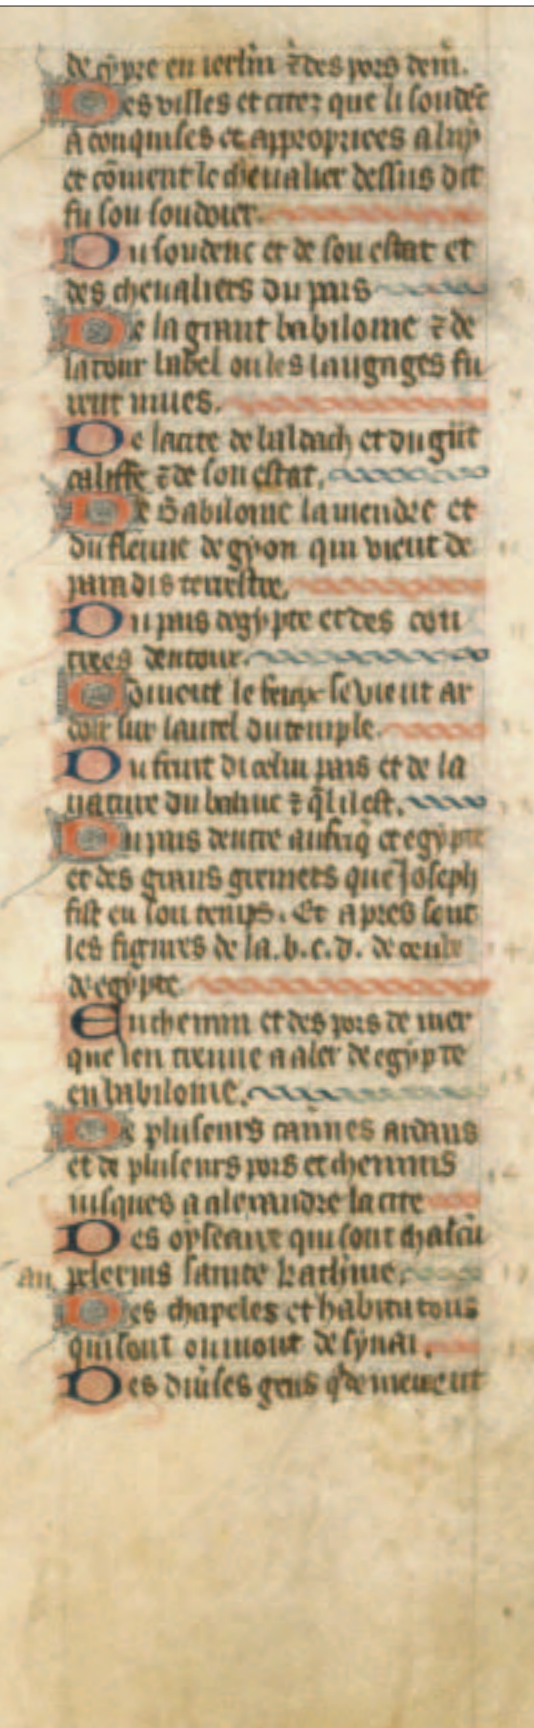 de cypre en ierl̃m ⁊ des pors dem̃.
Des villes et citez que li soudẽt
a conquises et appropriees a luy
et cõment le cheualier dessus dit
fu son soudoier.
Du soudenc et de son estat et
des cheualiers du pais
De la grant babiloine ⁊ de
la tour babel ou les langages fu
rent mues.
De la cite de baldach et du gñt
califfe ⁊ de son estat.
De Babiloine la mendre et
du fleuue de gyon qui vient de
paradis terrestre.
Du pais degypte et des con
trees dentour.
Coment le fenix se vient ar
doir sur lautel du temple.
Du fruit dicelui pais et de la
nature du basme ⁊ q̃l il est.
Du pais dentre aufriq̃ et egypte
et des grans greniers que Joseph
fist en son temps. Et apres sont
les figures de la .b.c.d. de ceulx
de egypte
En chemin et des pors de mer
que len treuue a aler de egypte
en babiloine.
De pluseurs cannes ardans
et de pluseurs pors et chemins
iusques a alexandre la cite
Des oyseaux qui sont chascũ
an pelerins sainte katherine.
Des chapeles et habitations
qui sont ou mont de synai.
Des diũses gens q̃ demeurent